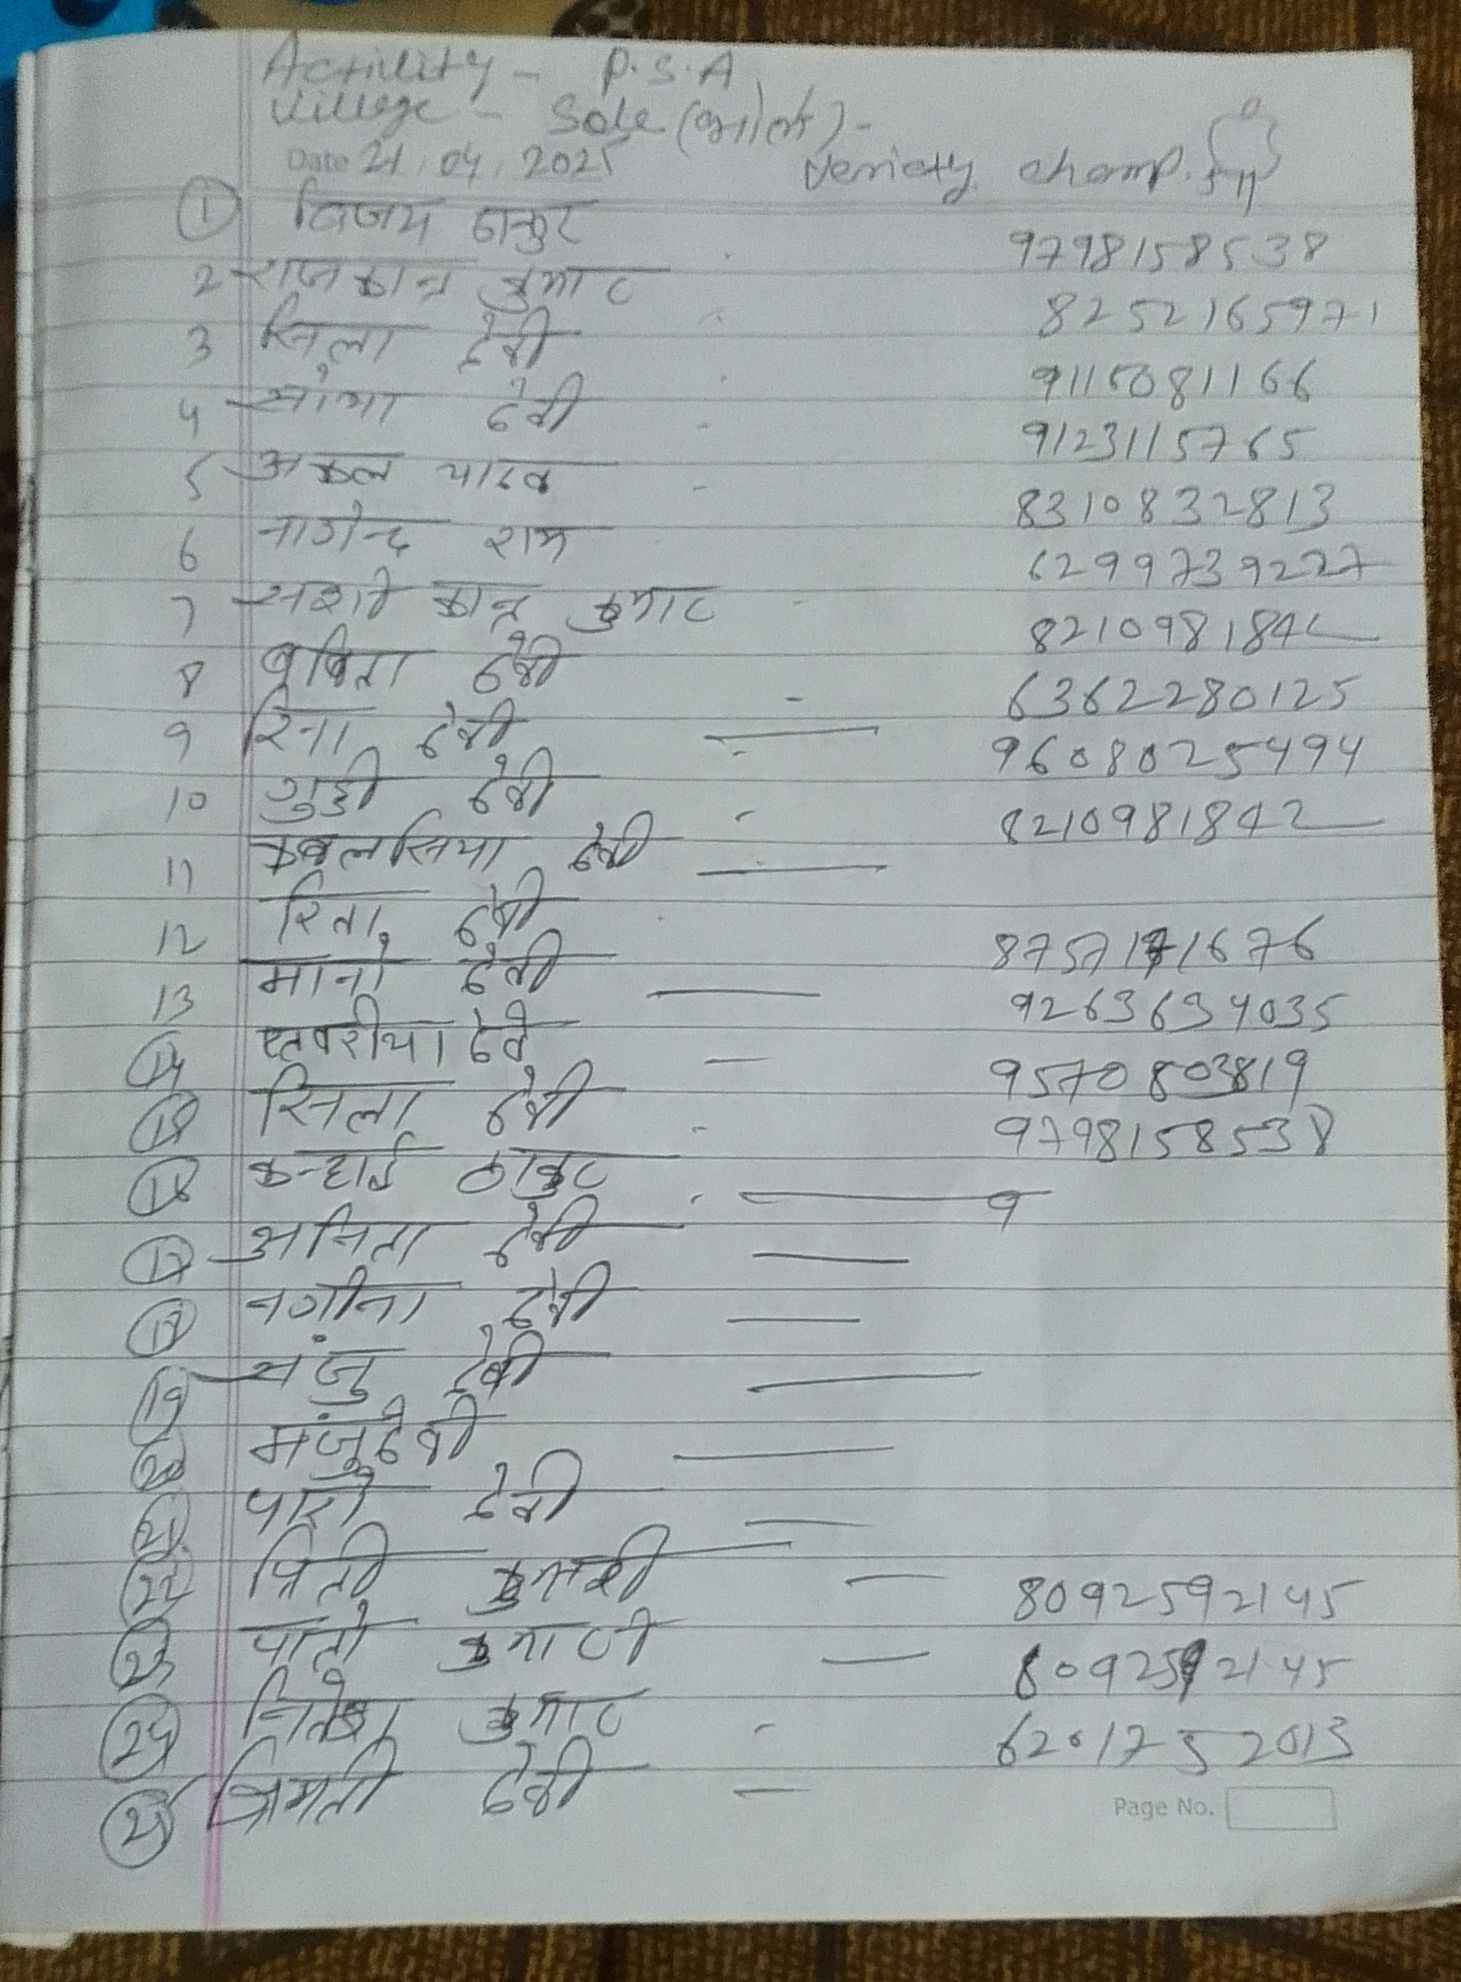 Activity - P.S.A
Village - Sole
Date 21.04.2025
Veriety champ.
1 विजय ठाकुर 9798158538
2 राज कान्त कुमार 8252165971
3 शिला देवी 9115081166
4 देवी 9123115765
5 अकल यादव 8310832813
6 नागेन्द्र राम 6299739227
7 कान्त कुमार 8210981842
8 बबिता देवी 6362280125
9 रिना देवी 9608025494
10 गुड्डी देवी 8210981842
11 देवी
12 रिता देवी 8757171676
13 मानो देवी 9263634035
14 9570803819
15 सिला देवी 9798158538
16 कन्हाई ठाकुर
17 अनिता देवी
नगीना देवी
19 संजु देवी
20 मंजु देवी
21 पारो देवी
22 प्रिती कुमारी 8092592145
23 कुमारी 8092592145
24 नितेश कुमार 6201752013
25 देवी
Page No.